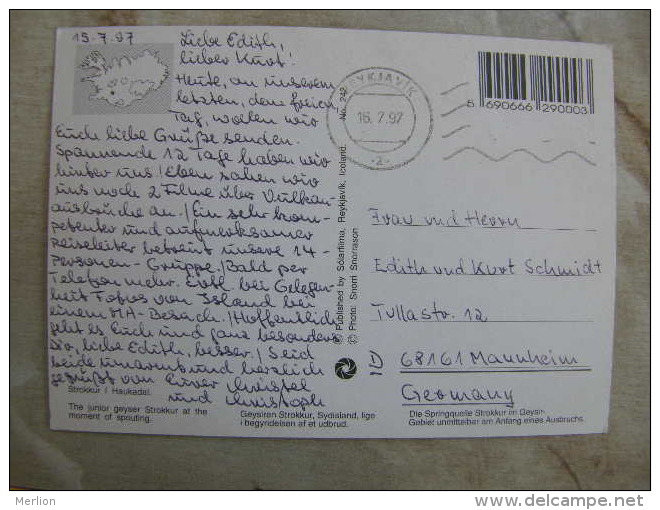 15.7.97
Liebe Edith,
lieber Kurt!
Heute, an unserem
letzten, dem freien
Tag, wollen wir
Euch liebe Grüße senden.
Spannende 12 Tage haben wir
hinter uns! Eben sahen wir
uns noch 2 Filme über Vulkan-
ausbrüche an. / Ein sehr kom-
petenter und aufmerksamer
Reiseleiter betreut unsere 14-
Personen-Gruppe. / Bald per
Telefon mehr. Evtl. bei Gelegen-
heit Fotos von Island bei
einem MA-Besuch. / Hoffentlich
geht es Euch und ganz besonders
Dir, liebe Edith, besser. / Seid
beide umarmt und herzlich
gegrüßt von Eurer Christel
und Christoph
Strokkur í Haukadal.
The junior geyser Strokkur at the
moment of spouting.
Geysiren Strokkur, Sydisland, lige
i begyndelsen af et udbrud.
Die Springquelle Strokkur im Geysir-
Gebiet unmittelbar am Anfang eines Ausbruchs.
No. 242
© Published by Sólarfilma, Reykjavík, Iceland.
© Photo: Snorri Snorrason
REYKJAVÍK
16.7.97
-2-
5 690666 290003
Frau und Herrn
Edith und Kurt Schmidt
Tullastr. 12
D 68161 Mannheim
Germany
Merlion
www.delcampe.net